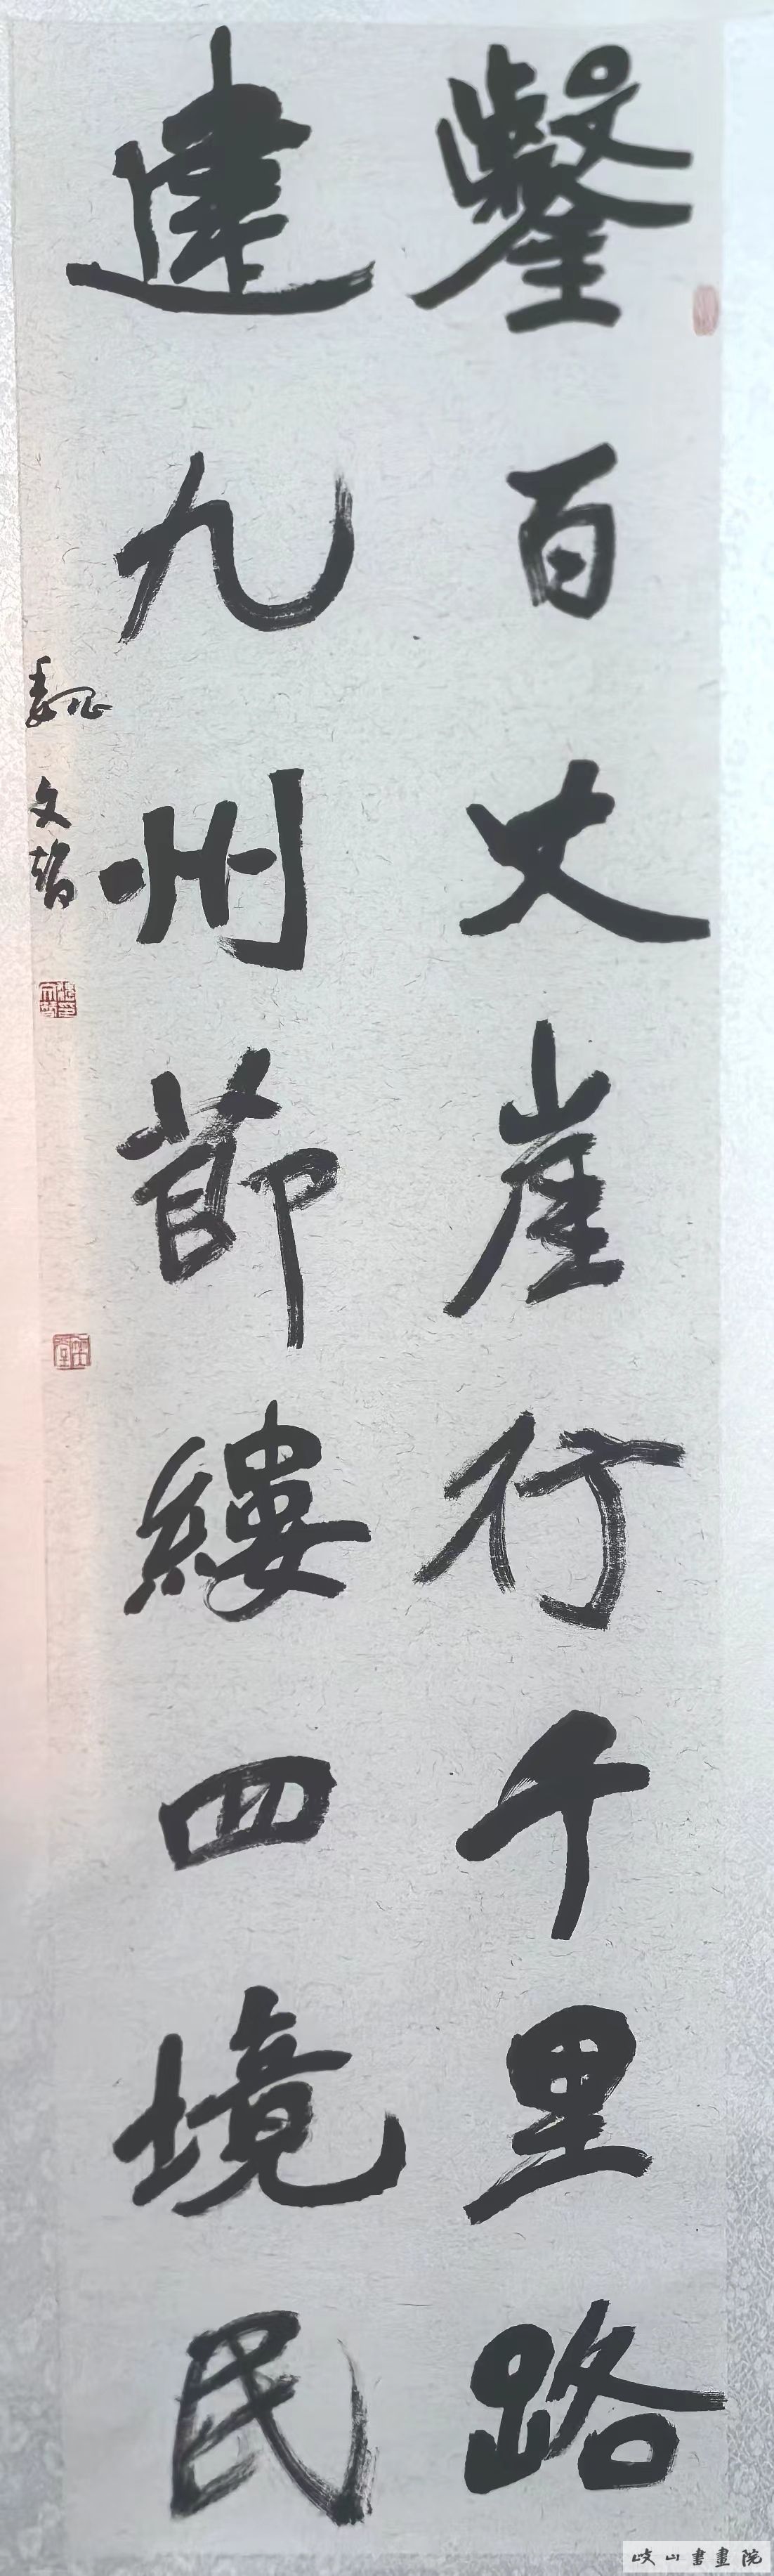 鑿百丈崖行千里路
建九州節縷四境民
文
岐山書畫院